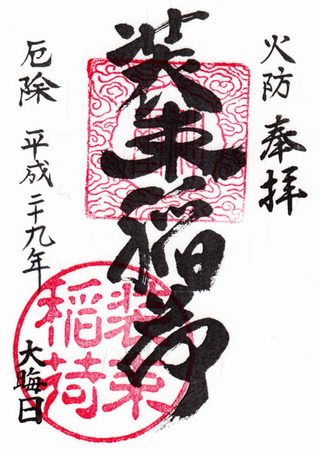 火防 奉拝
装束稲荷
厄除 平成二十九年
大晦日
装束
稲荷